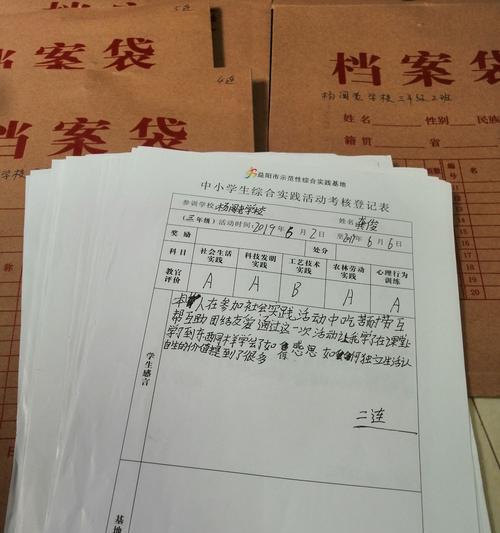 5连
档案袋
4连
档案袋
学校
档案袋
杨阁老学校三年级二班
姓名 性别 民族
籍贯 省
益阳市示范性综合实践基地
中小学生综合实践活动考核登记表
参训学校 杨阁老学校 姓名 龚俊
(三年级) 活动时间: 2019年6月2日至2019年6月6日
奖励 处分
科目 社会生活实践 科技发明实践 工艺技术实践 农林劳动实践 心理行为训练
教官评价 A A B A A
学生感言
本人在参加社会实践活动中吃苦耐劳互
帮互助团结友爱 通过这一次活动让我学在课堂上
学到东西同样学会了如 感恩 如何独立生活认
自生的价值提到了很多
二连
基地